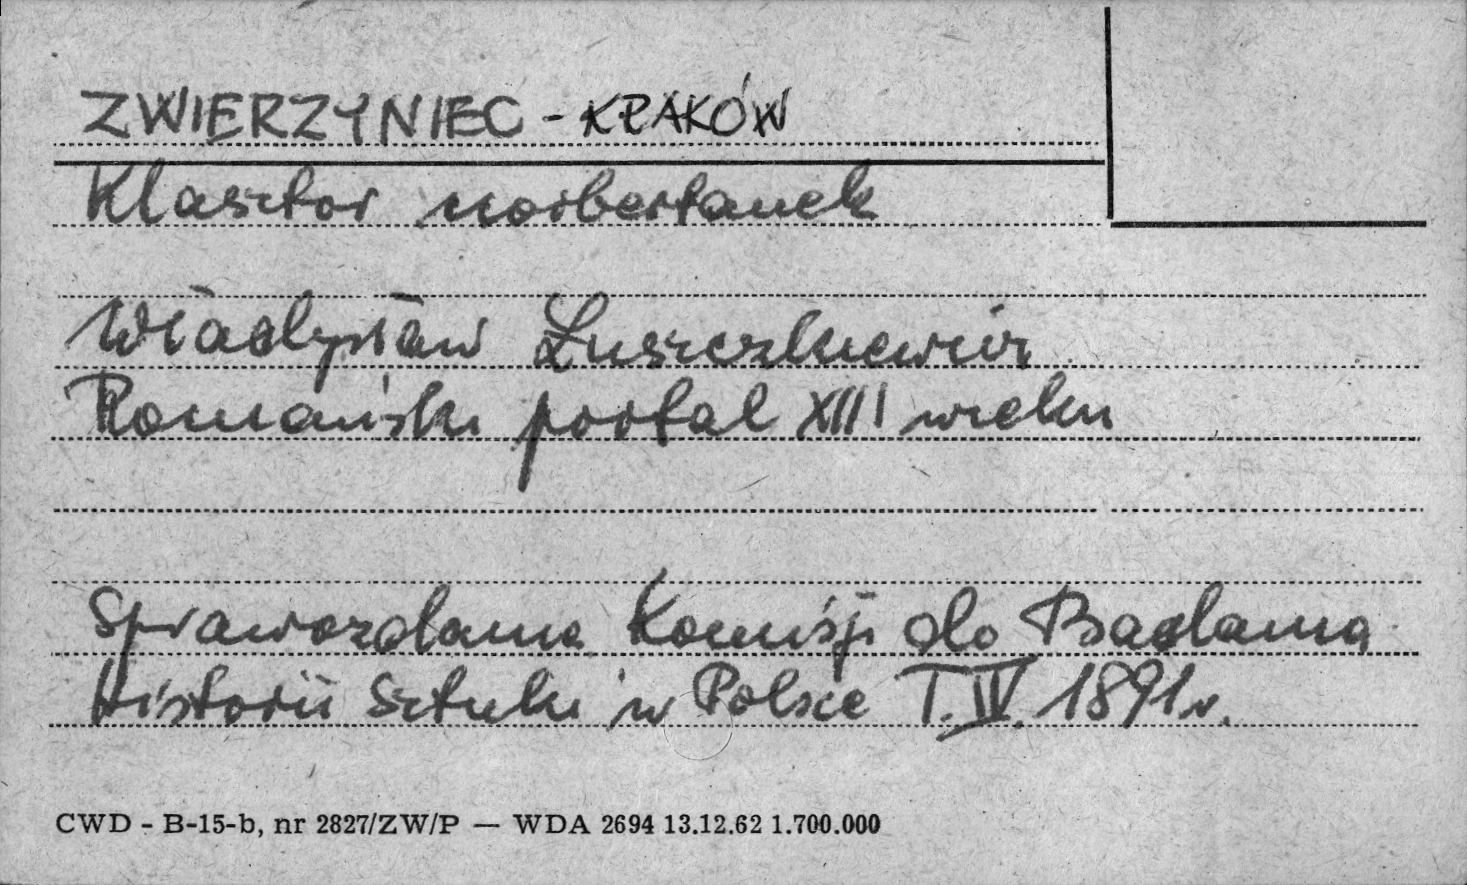 ZWIERZYNIEC - KRAKÓW
Klasztor norbertanek
Władysław Łuszczkiewicz
Romański portal XIII wieku
Sprawozdania Komisji do Badania
Historii Sztuki w Polsce T. IV. 1891 r.
CWD - B-15-b, nr 2827/ZW/P — WDA 2694 13.12.62 1.700.000